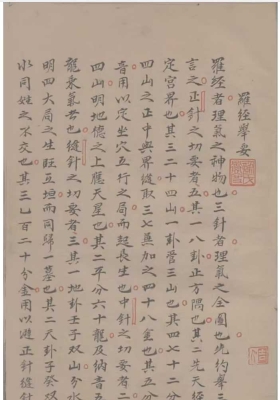 羅經舉要
羅經者理氣之神物也三針者理氣之全圖也先約舉三
言之正針之切要者五其一八卦正方隅也其二先天經
定宮界也其三二十四山一卦管三山也其四七十二分
四山之正中與界縫取三七互加之四十八局也其五分
音用以定坐穴五行之局而起長生也中針之切要者二
四山明地德之上應天星也其二平分六十龍及納音五
龍乘氣者也縫針之切要者三其一地卦壬子雙山分水
明四大局之生旺互垣而同歸一墓也其二天卦子癸
水同姓之不交也其三七百二十分金用以避正針縫針